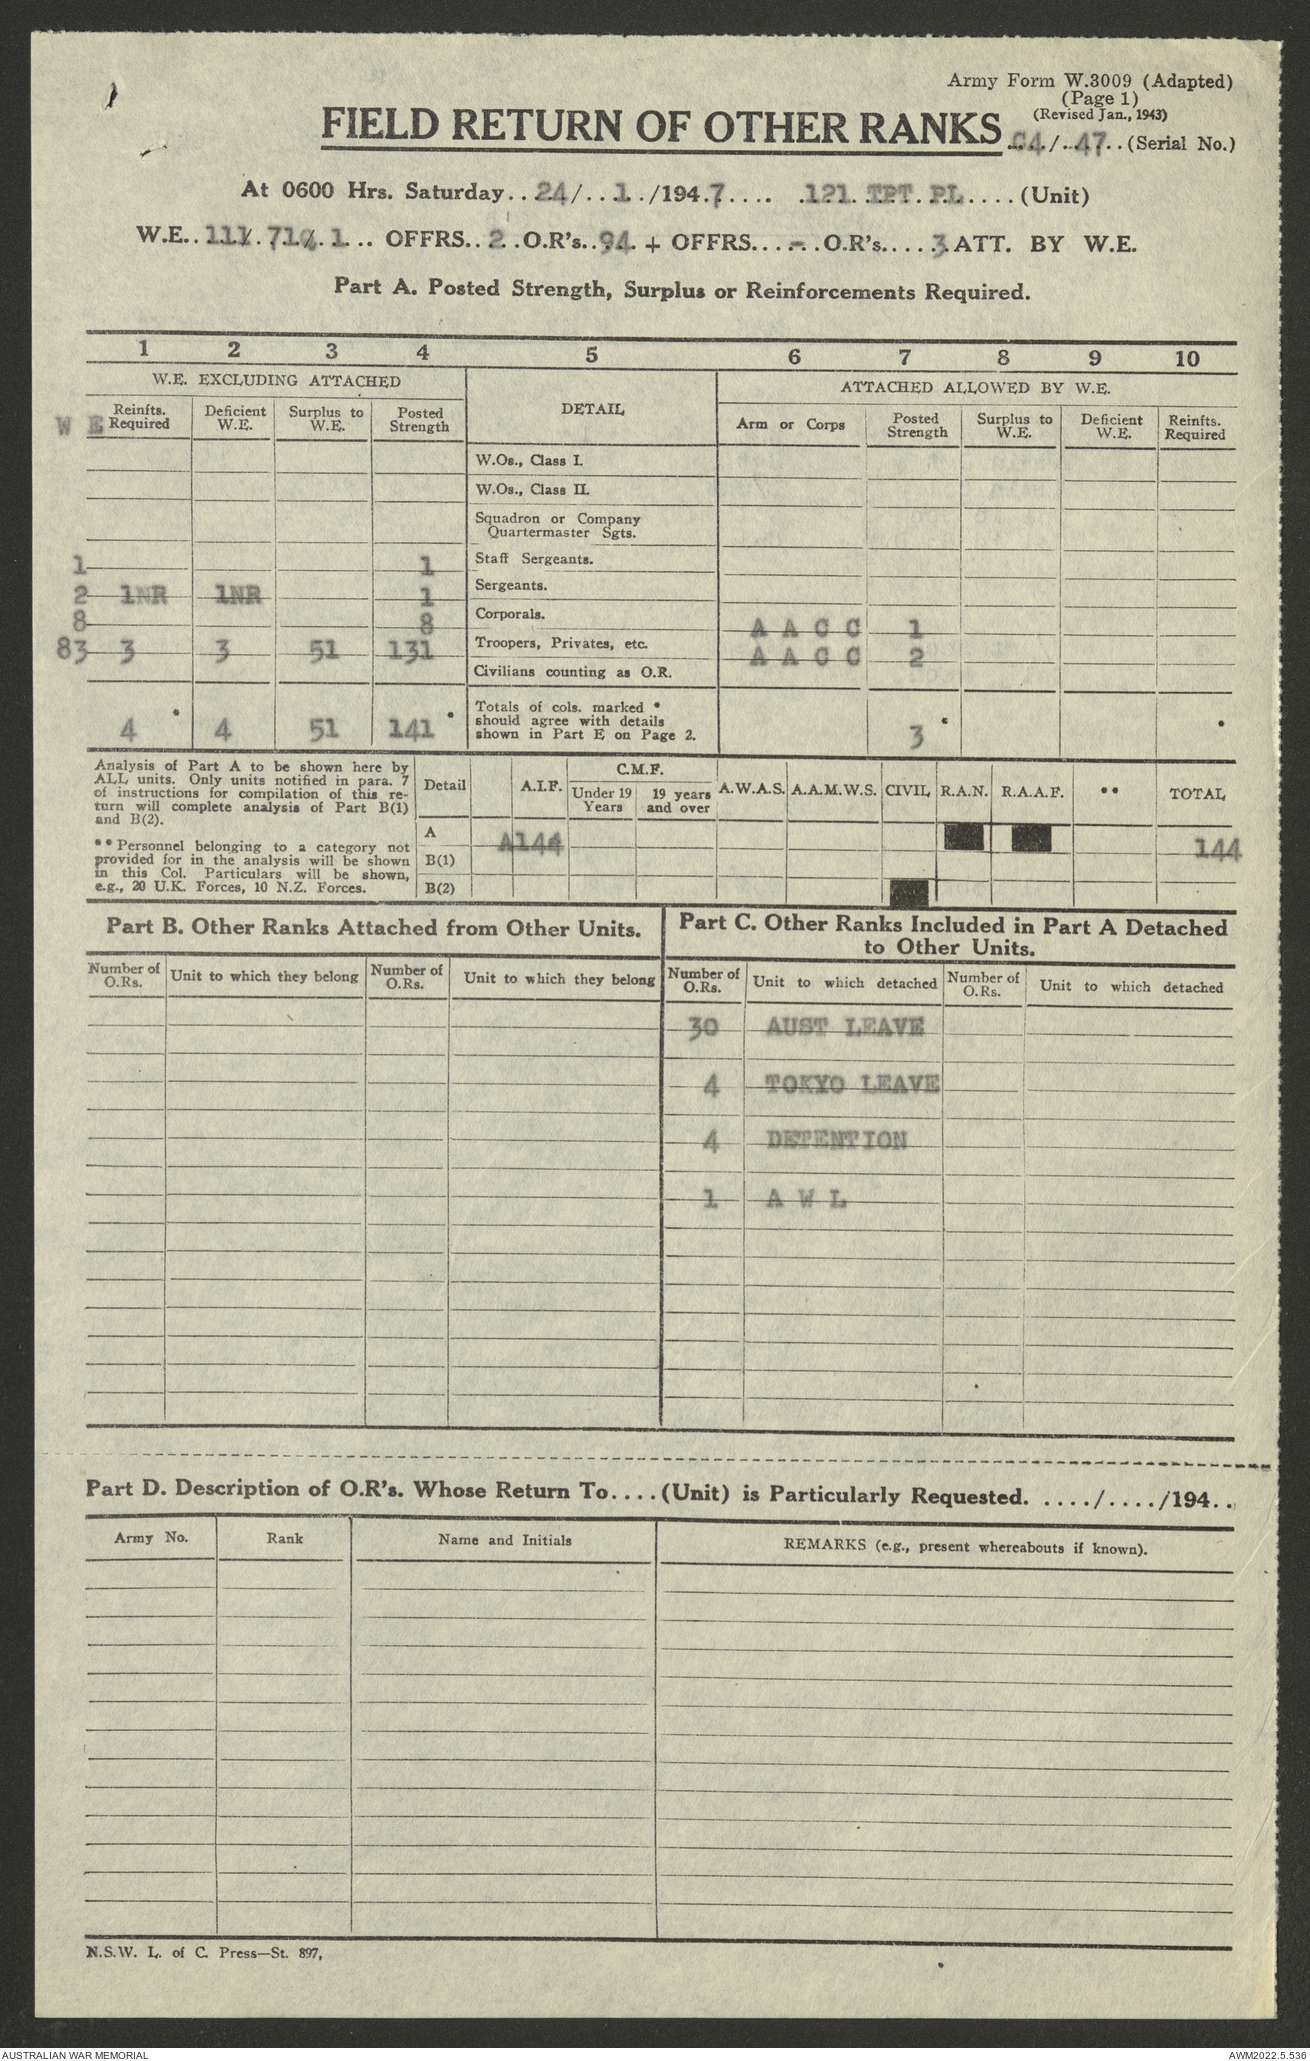 Army Form W.3009 (Adapted)
(Page 1)
(Revised Jan., 1943)
FIELD RETURN OF OTHER RANKS 04/. .47. . (Serial No.)
At 0600 Hrs. Saturday. . 24/. . 1. ./194.7. . . . .121. TPT. PL. . . . (Unit)
W.E. . 111/.71 . 1. . . OFFRS. . 2. .O.R's. .94. + OFFRS. . . .-. .O.R's. . . . .3.ATT. BY W.E.
Part A. Posted Strength, Surplus or Reinforcements Required.
1 2 3 4 5 6 7 8 9 10
W.E. EXCLUDING ATTACHED DETAIL ATTACHED ALLOWED BY W.E.
W E Reinfts. Required Deficient W.E. Surplus to W.E. Posted Strength Arm or Corps Posted Strength Surplus to W.E. Deficient W.E. Reinfts. Required
W.Os., Class I.
W.Os., Class II.
Squadron or Company
Quartermaster Sgts.
1 1 Staff Sergeants.
2 1NR 1NR 1 Sergeants.
8 8 Corporals. A A C C 1
83 3 3 51 131 Troopers, Privates, etc. A A C C 2
Civilians counting as O.R.
Totals of cols. marked *
should agree with details
shown in Part E on Page 2.
4 * 4 51 141 * 3 * *
Analysis of Part A to be shown here by
ALL units. Only units notified in para. 7
of instructions for compilation of this re-
turn will complete analysis of Part B(1)
and B(2).
** Personnel belonging to a category not
provided for in the analysis will be shown
in this Col. Particulars will be shown,
e.g., 20 U.K. Forces, 10 N.Z. Forces.
Detail A.I.F. C.M.F. Under 19 Years 19 years and over A.W.A.S. A.A.M.W.S. CIVIL R.A.N. R.A.A.F. ** TOTAL
A A144 144
B(1)
B(2)
Part B. Other Ranks Attached from Other Units.
Number of O.Rs. Unit to which they belong Number of O.Rs. Unit to which they belong
Part C. Other Ranks Included in Part A Detached
to Other Units.
Number of O.Rs. Unit to which detached Number of O.Rs. Unit to which detached
30 AUST LEAVE
4 TOKYO LEAVE
4 DETENTION
1 A W L
Part D. Description of O.R's. Whose Return To. . . . (Unit) is Particularly Requested. . . . ./. . . ./194. .
Army No. Rank Name and Initials REMARKS (e.g., present whereabouts if known).
N.S.W. L. of C. Press—St. 897,
AUSTRALIAN WAR MEMORIAL
AWM2022.5.536